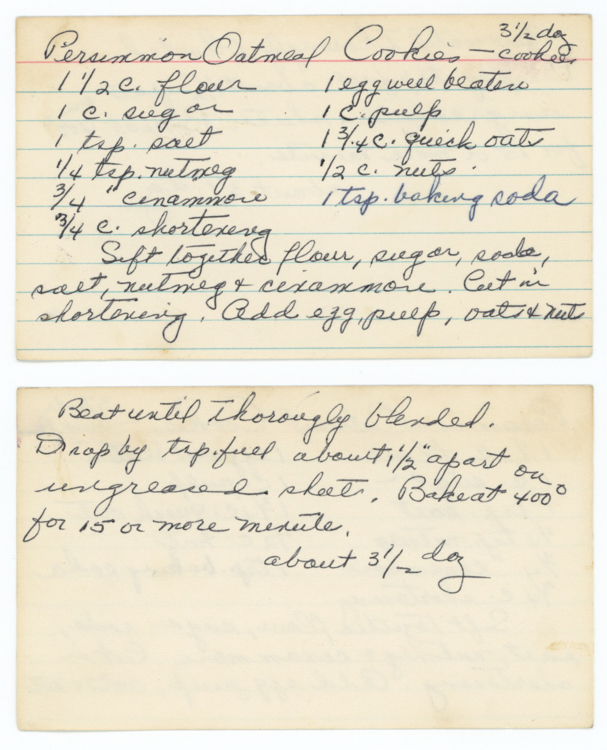 3 1/2 doz
Persimmon Oatmeal Cookies — cookies
1 1/2 c. flour
1 c. sugar
1 tsp. salt
1/4 tsp. nutmeg
3/4 " cinammon
3/4 c. shortening
1 egg well beaten
1 c. pulp
1 3/4 c. quick oats
1/2 c. nuts.
1 tsp. baking soda
Sift together flour, sugar, soda,
salt, nutmeg & cinammon. Cut in
shortening. Add egg, pulp, oats & nuts
Beat until thorougly blended.
Drop by tsp. full about 1 1/2" apart on
ungreased sheet. Bake at 400°
for 15 or more minute.
about 3 1/2 doz